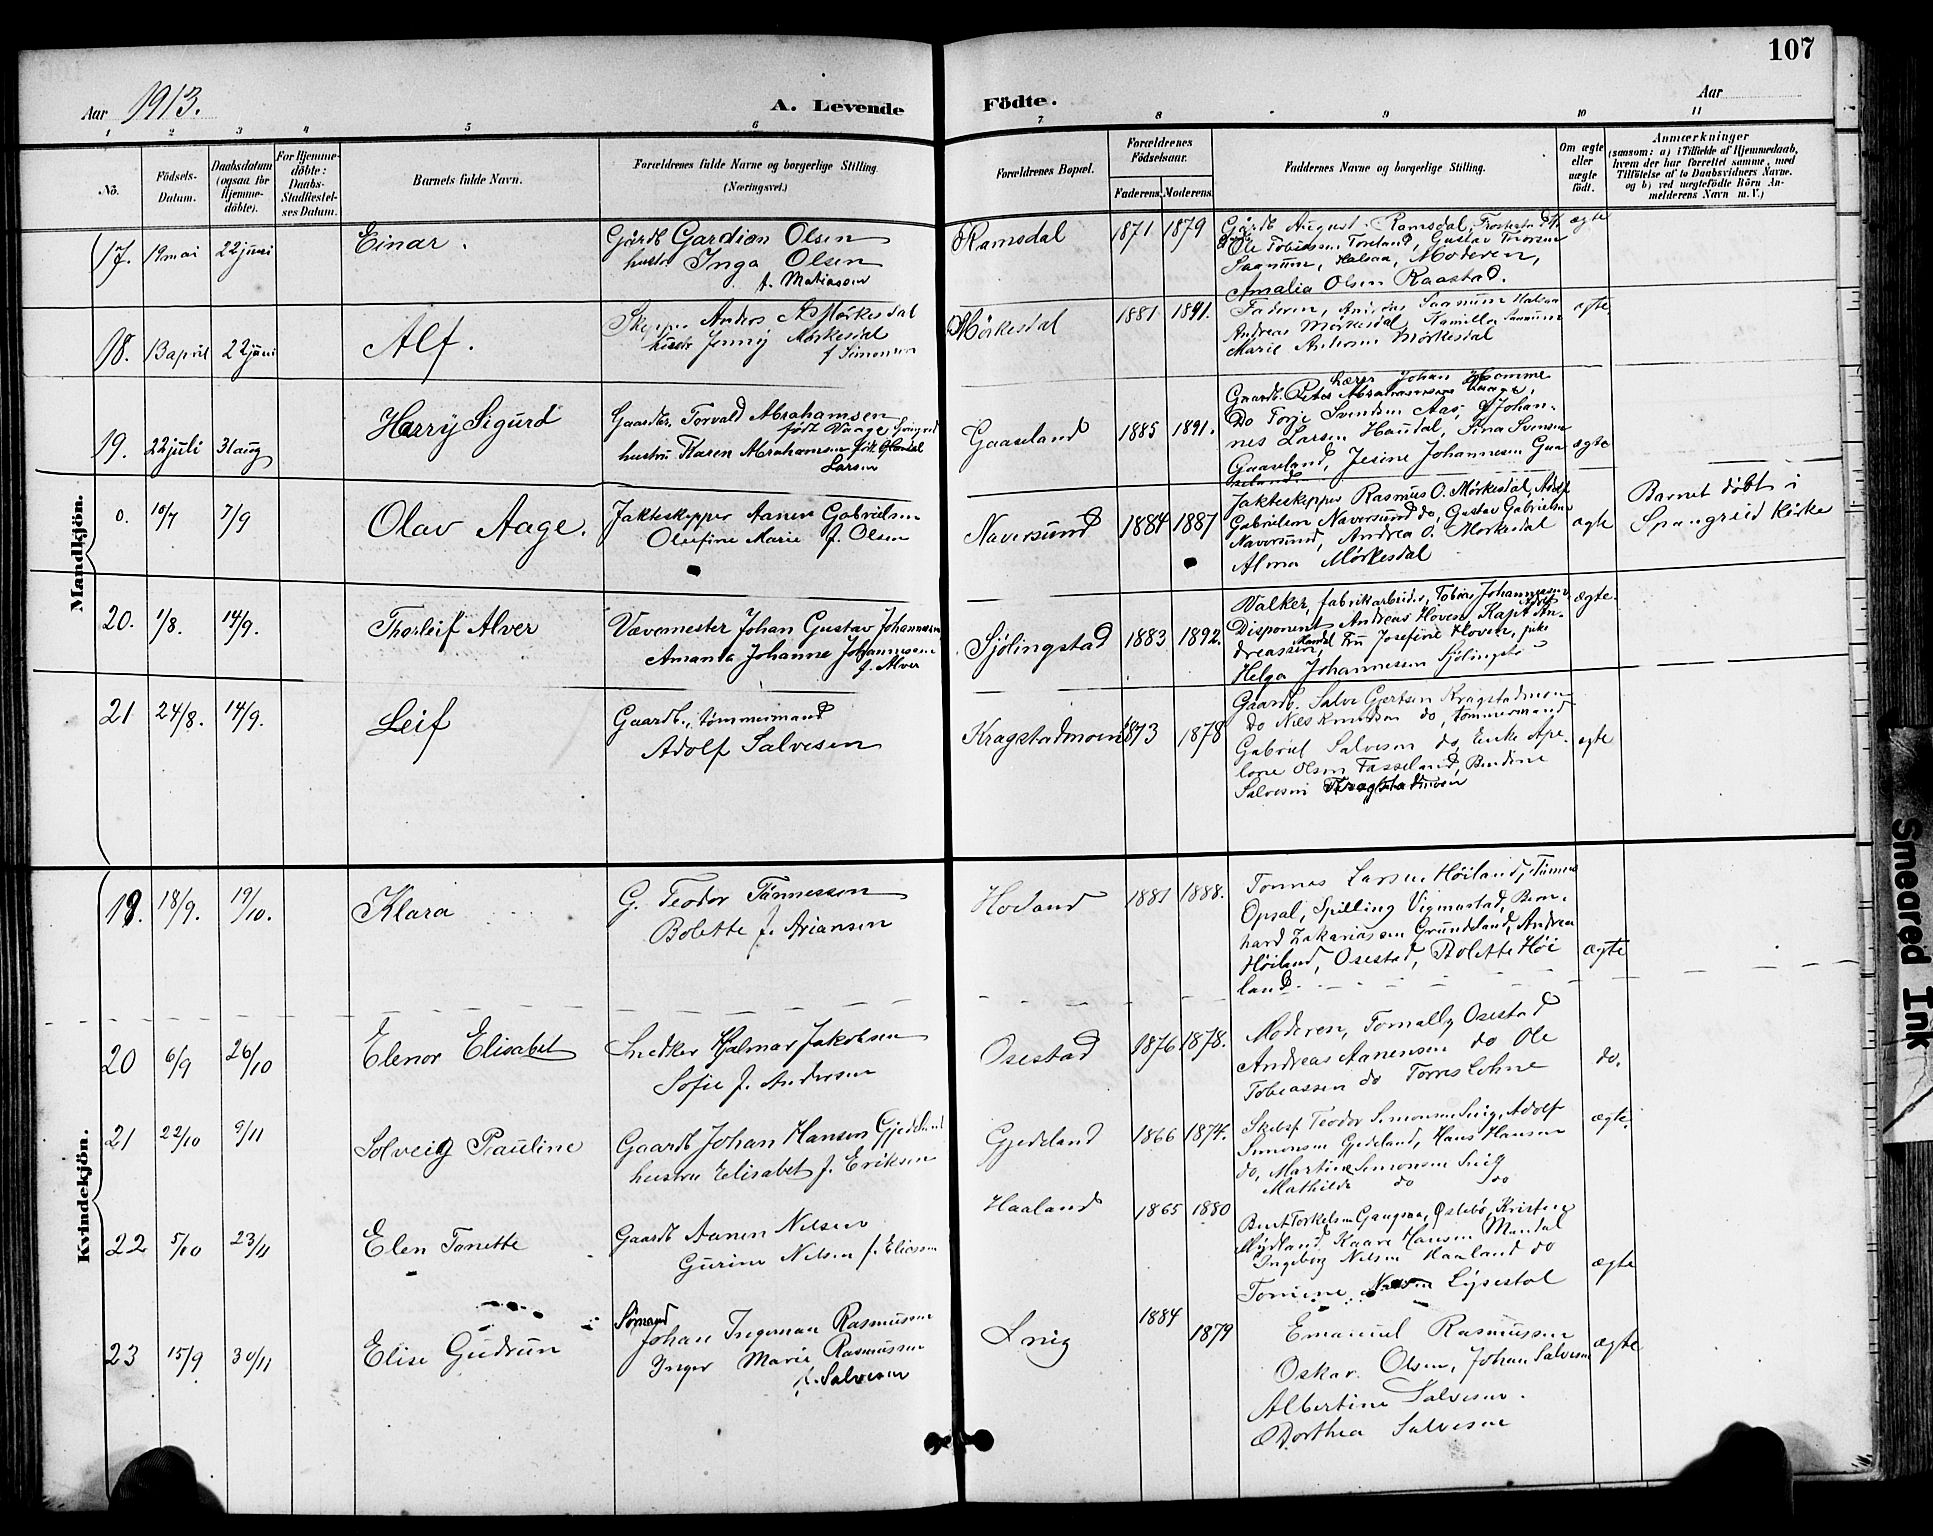 107
Aar 1913.
A. Levende Födte.
Aar
1 2 3 4 5 6 7 8 9 10 11
No.
Födsels-Datum.
Daabsdatum (ogsaa for Hjemme-döbte).
For Hjemme-döbte: Daabs-Stadfæstel-ses Datum.
Barnets fulde Navn.
Forældrenes fulde Navne og borgerlige Stilling. (Næringsvei.)
Forældrenes Bopæl.
Forældrenes Födselsaar.
Faderens. Moderens.
Faddernes Navne og borgerlige Stilling.
Om ægte eller uægte födt.
Anmærkninger
(saasom: a) i Tilfælde af Hjemmedaab,
hvem der har forrettet samme, med
Tilföielse af to Daabsvidners Navne.
og b) ved uægtefödte Börn An-
melderens Navn m. V.)
Mandkjön.
17. 19 mai 22 juni Einar.
Gårdb Gardian Olsen
hustru Inga Olsen
f. Matiassen
Ramsdal 1871 1879
Gårdb August Ramsdal,
Ole Tobiassen Foreland, Gustav
Saanum, Halsaa, Moderen,
Amalia Olsen Raastad.
ægte
18. 13 april 22 juni Alf.
Anders Mörkesdal
hustr Jenny Mörkesdal
f Simonsen
Mörkesdal 1881 1891.
Faderen, Saanum Halsaa
Andreas Mörkesdal, Kamilla Saanum
Marie Mörkesdal
ægte
19. 22 juli 31 aug Harry Sigurd
Gaardbr. Torvald Abrahamsen
födt Vaage
hustru Karen Abrahamsen föt
Larsen
Gaaseland 1885 1891.
Lærer Johan Homme
Gaardb. Peter Abrahamsen Vaage,
Do Torje Svendsen Aas, Johan-
nes Larsen Haudal, Sina Svensen
Gaaseland, Jesine Johannesen Gaa-
seland
ægte
0. 10/7 7/9 Olav Aage.
Jakteskipper Aanen Gabrielsen
Olefine Marie f. Olsen
Naversund 1884 1887
Jakteskipper Rasmus O. Mörkesdal, Adolf
Gabrielsen Naversund do, Gustav Gabrielsen
Naversund, Andrea O. Mörkesdal
Alma Mörkesdal
ægte
Barnet döbt i
Spangreid kirke
20. 1/8. 14/9. Thorleif Alver
Vævemester Johan Gustav Johannesen
Amanda Johanne Johannesen
f. Alver
Sjölingstad 1883 1892.
Valker, fabrikarbeider, Tobias Johannesen
Disponent Andreas Hoven, Kapt An-
dreassen, Mandal Fru Josefine Hoven,
Helga Johannesen Sjölingstad
ægte.
21 24/8. 14/9. Leif
Gaardb., tömmermand
Adolf Salvesen
Kragstadmoen 1873 1878
Gaardb. Salve Gjertsen Kragstadmoen
do Nils Knudsen do, tömmermand
Gabriel Salvesen do, Enke Ape-
lone Olsen Fasseland, Bendine
Salvesen Kragstadmoen
ægte
Kvindekjön.
19. 18/9. 19/10. Klara
G. Teodor Tönnessen
Bolette f. Ariansen
Höiland 1881 1888.
Tönnes Larsen Höiland, Tönnes
Opsal, Spilling Vigmostad, Bern-
hard Zakariassen Grundeland, Andrea
Höiland, Osestad, Bolette Höi
land
ægte
20 6/9 26/10 Elenor Elisabet
Snedker Hjalmar Jakobsen
Sofie f. Andersen
Osestad 1876 1878.
Moderen, Osestad
Andreas Aanensen do Ole
Tobiassen do
do.
21 22/10 9/11 Solveig Pauline
Gaardb Johan Hansen Gjedeland
hustru Elisabet f. Eriksen
Gjedeland 1866 1874.
Teodor Simonsen Snig, Adolf
Simonsen Gjedeland, Hans Hansen
do, Martine Simonsen Snig
Mathilde do do
ægte.
22 5/10 23/11 Elen Tonette
Gaardb Aanen Nilsen
Gurine Nilsen f. Eliassen
Haaland 1865 1880
Berit Torkelsen Östebö, Kristen
Mydland, Kaare Hansen Mandal
Ingeborg Nilsen Haaland do
Tomine Nilsen Lysestöl
ægte
23 15/9 30/11 Elise Gudrun
Sömand
Johan Ingeman Rasmussen
Inger Marie Rasmussen
f. Salvesen
Snig 1884 1879
Emanuel Rasmussen
Oskar Olsen, Johan Salvesen
Albertine Salvesen.
Dorthea Salvesen
ægte
Smeared Ink